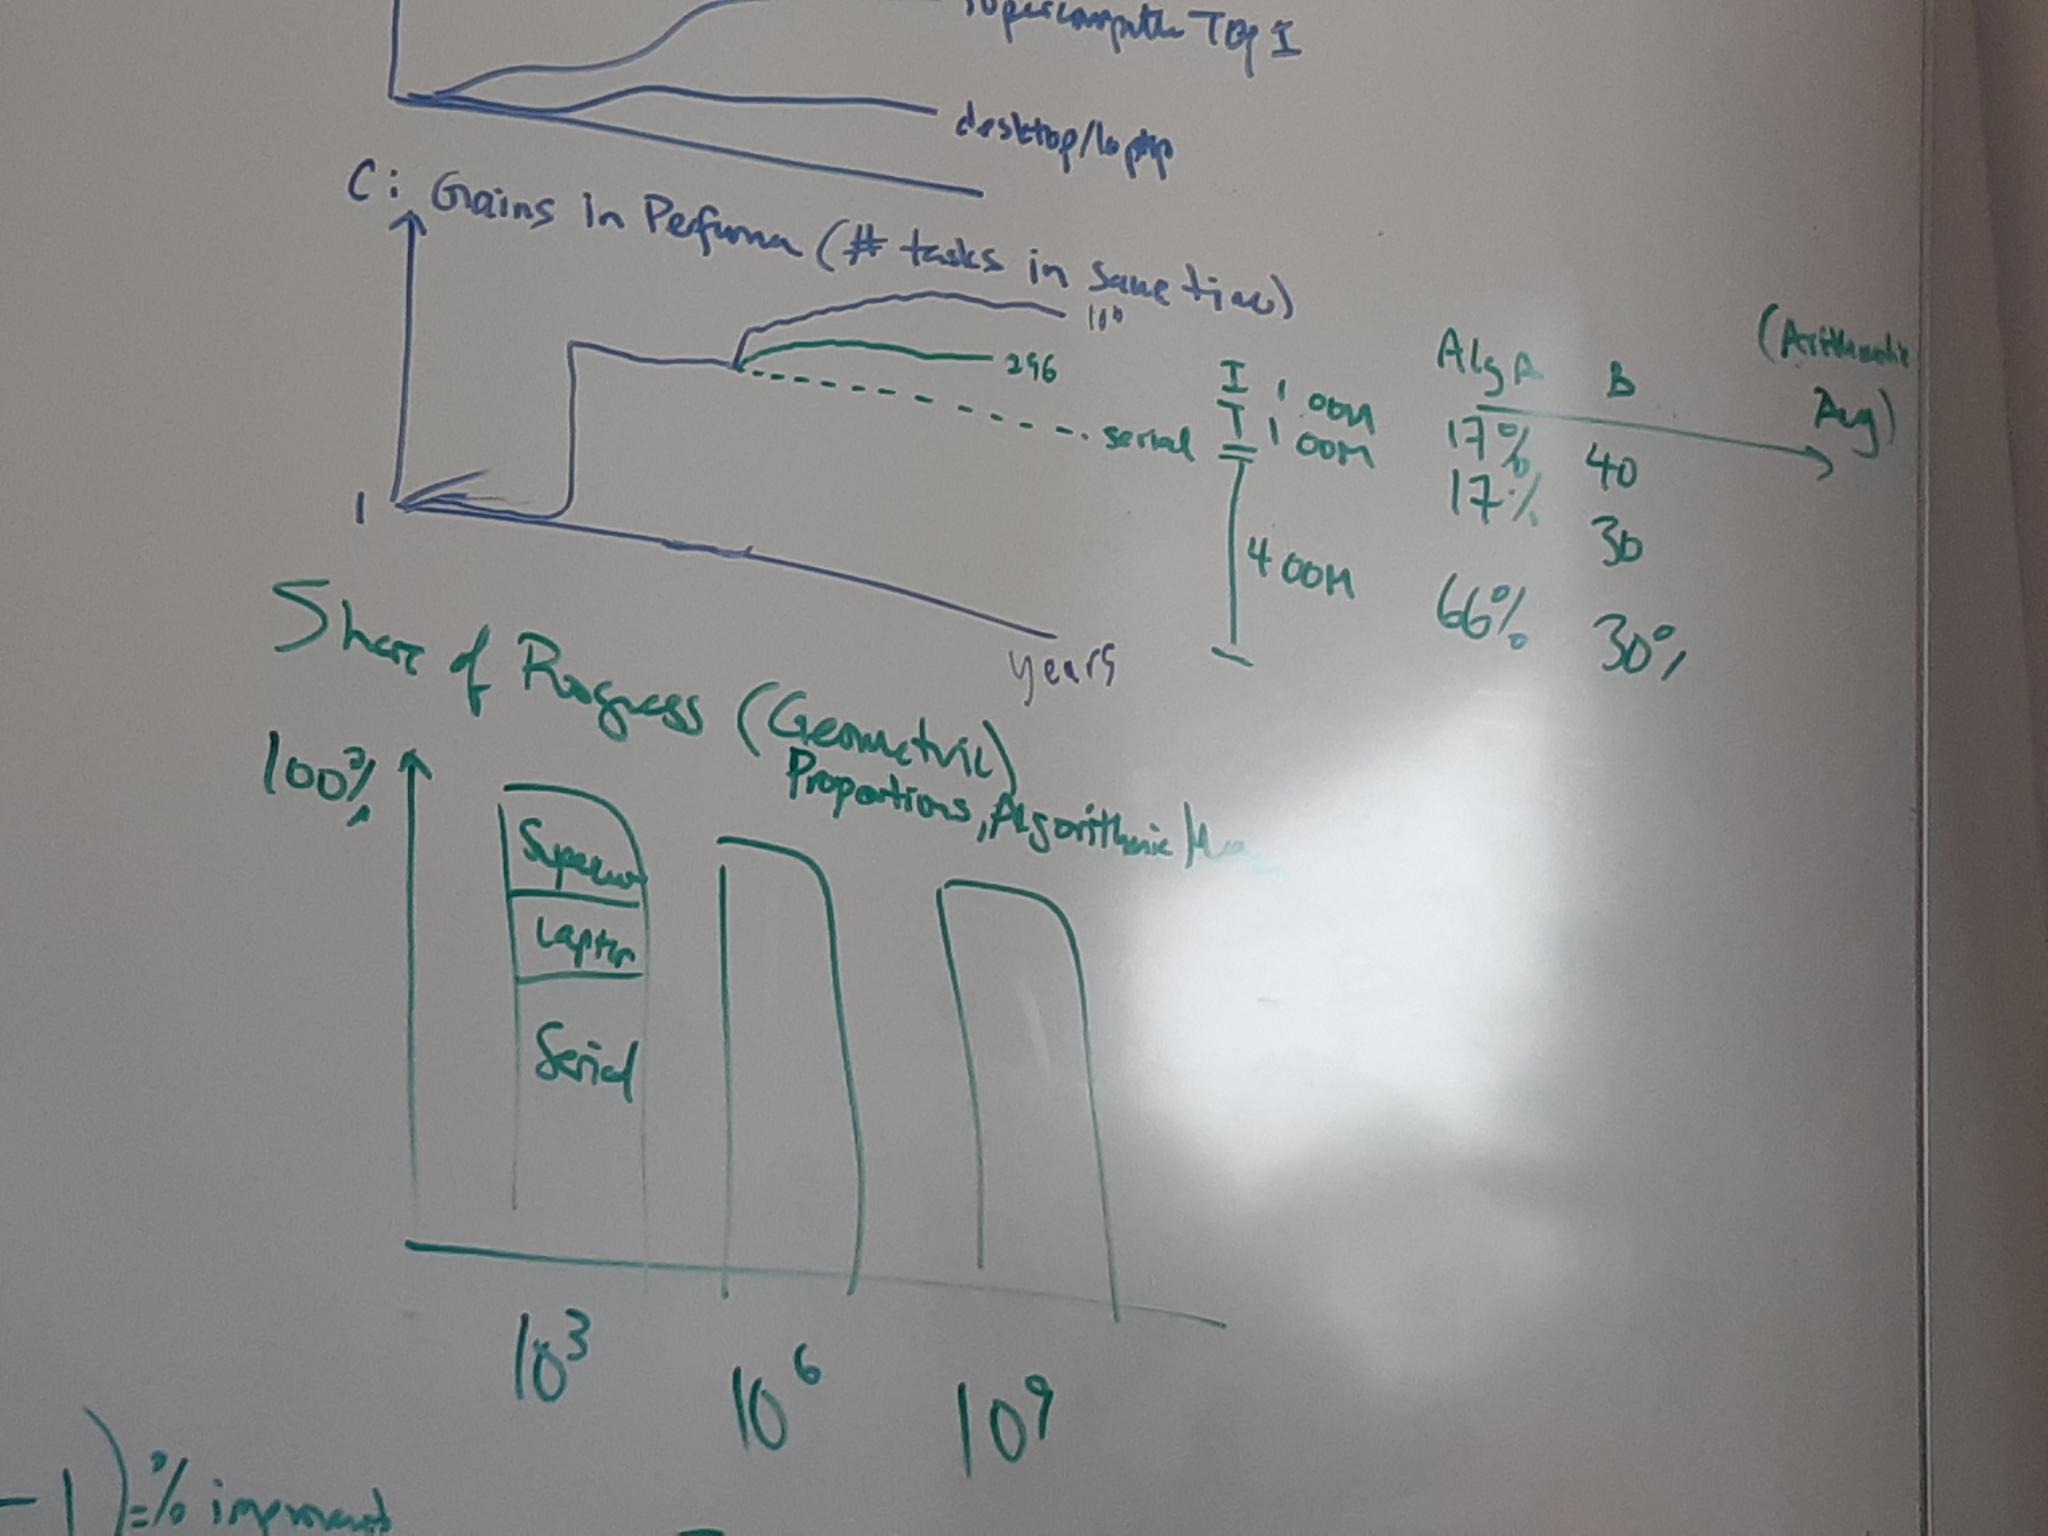 Supercomputer Top 1
desktop/laptop
C: Gains in Performa (# tasks in same time)
296
serial
1
years
I 1 OOM
1 OOM
4 OOM
Alg A B (Arithmetic Avg)
17% 40
17% 30
66% 30%
Share of Progress (Geometric)
Proportions, Algorithmic
100%
Superco
Laptop
Serial
10³
10⁶
10⁹
-1) = % improvement